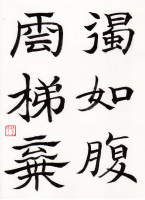 遏如腹
雲梯棄